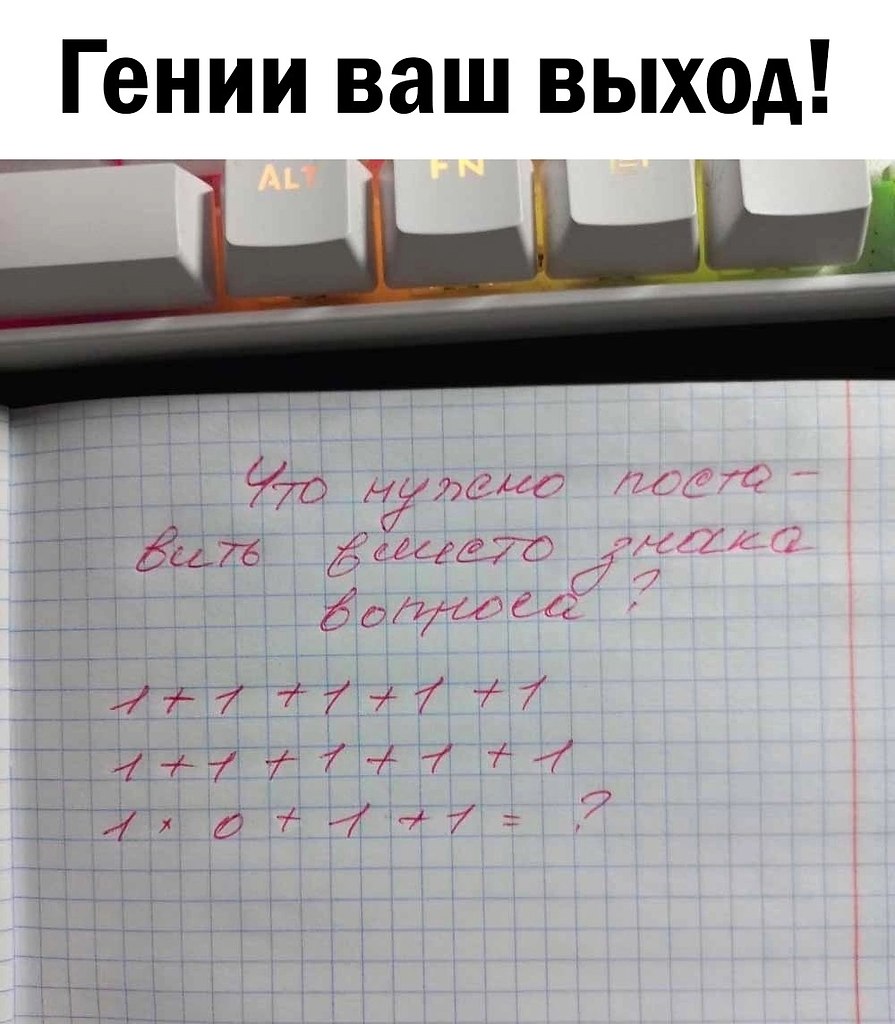 Гении ваш выход!
ALT FN
Что нужно поста-
вить вместо знака
вопроса?
1 + 1 + 1 + 1 + 1
1 + 1 + 1 + 1 + 1
1 × 0 + 1 + 1 = ?